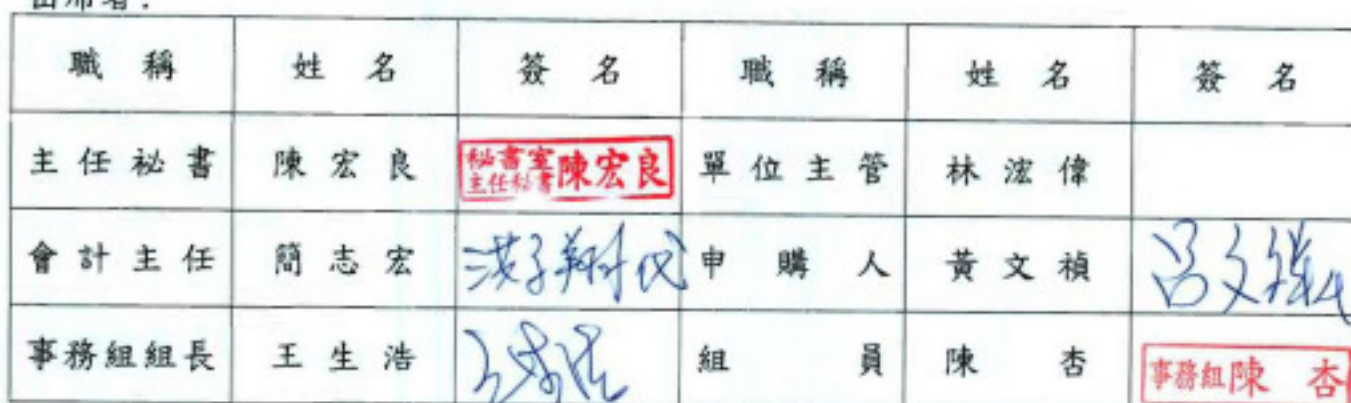 出席者：
職稱 姓名 簽名 職稱 姓名 簽名
主任祕書 陳宏良 秘書室主任秘書陳宏良 單位主管 林浤偉
會計主任 簡志宏 申購人 黃文禎
事務組組長 王生浩 組員 陳杏 事務組陳杏